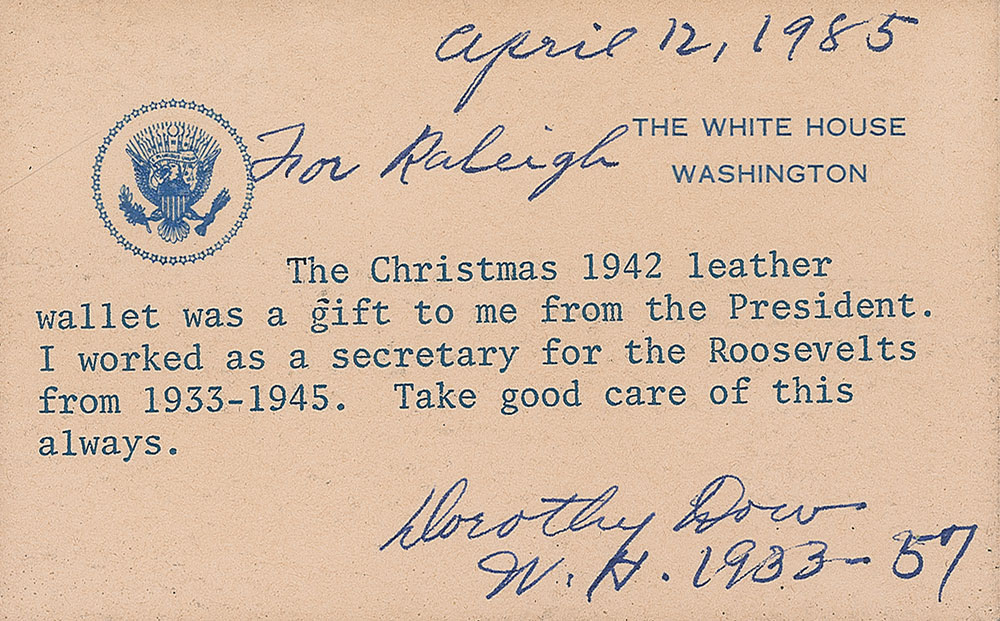 April 12, 1985
For Raleigh
THE WHITE HOUSE
WASHINGTON
The Christmas 1942 leather
wallet was a gift to me from the President.
I worked as a secretary for the Roosevelts
from 1933-1945. Take good care of this
always.
Dorothy Dow
W. H. 1933-57